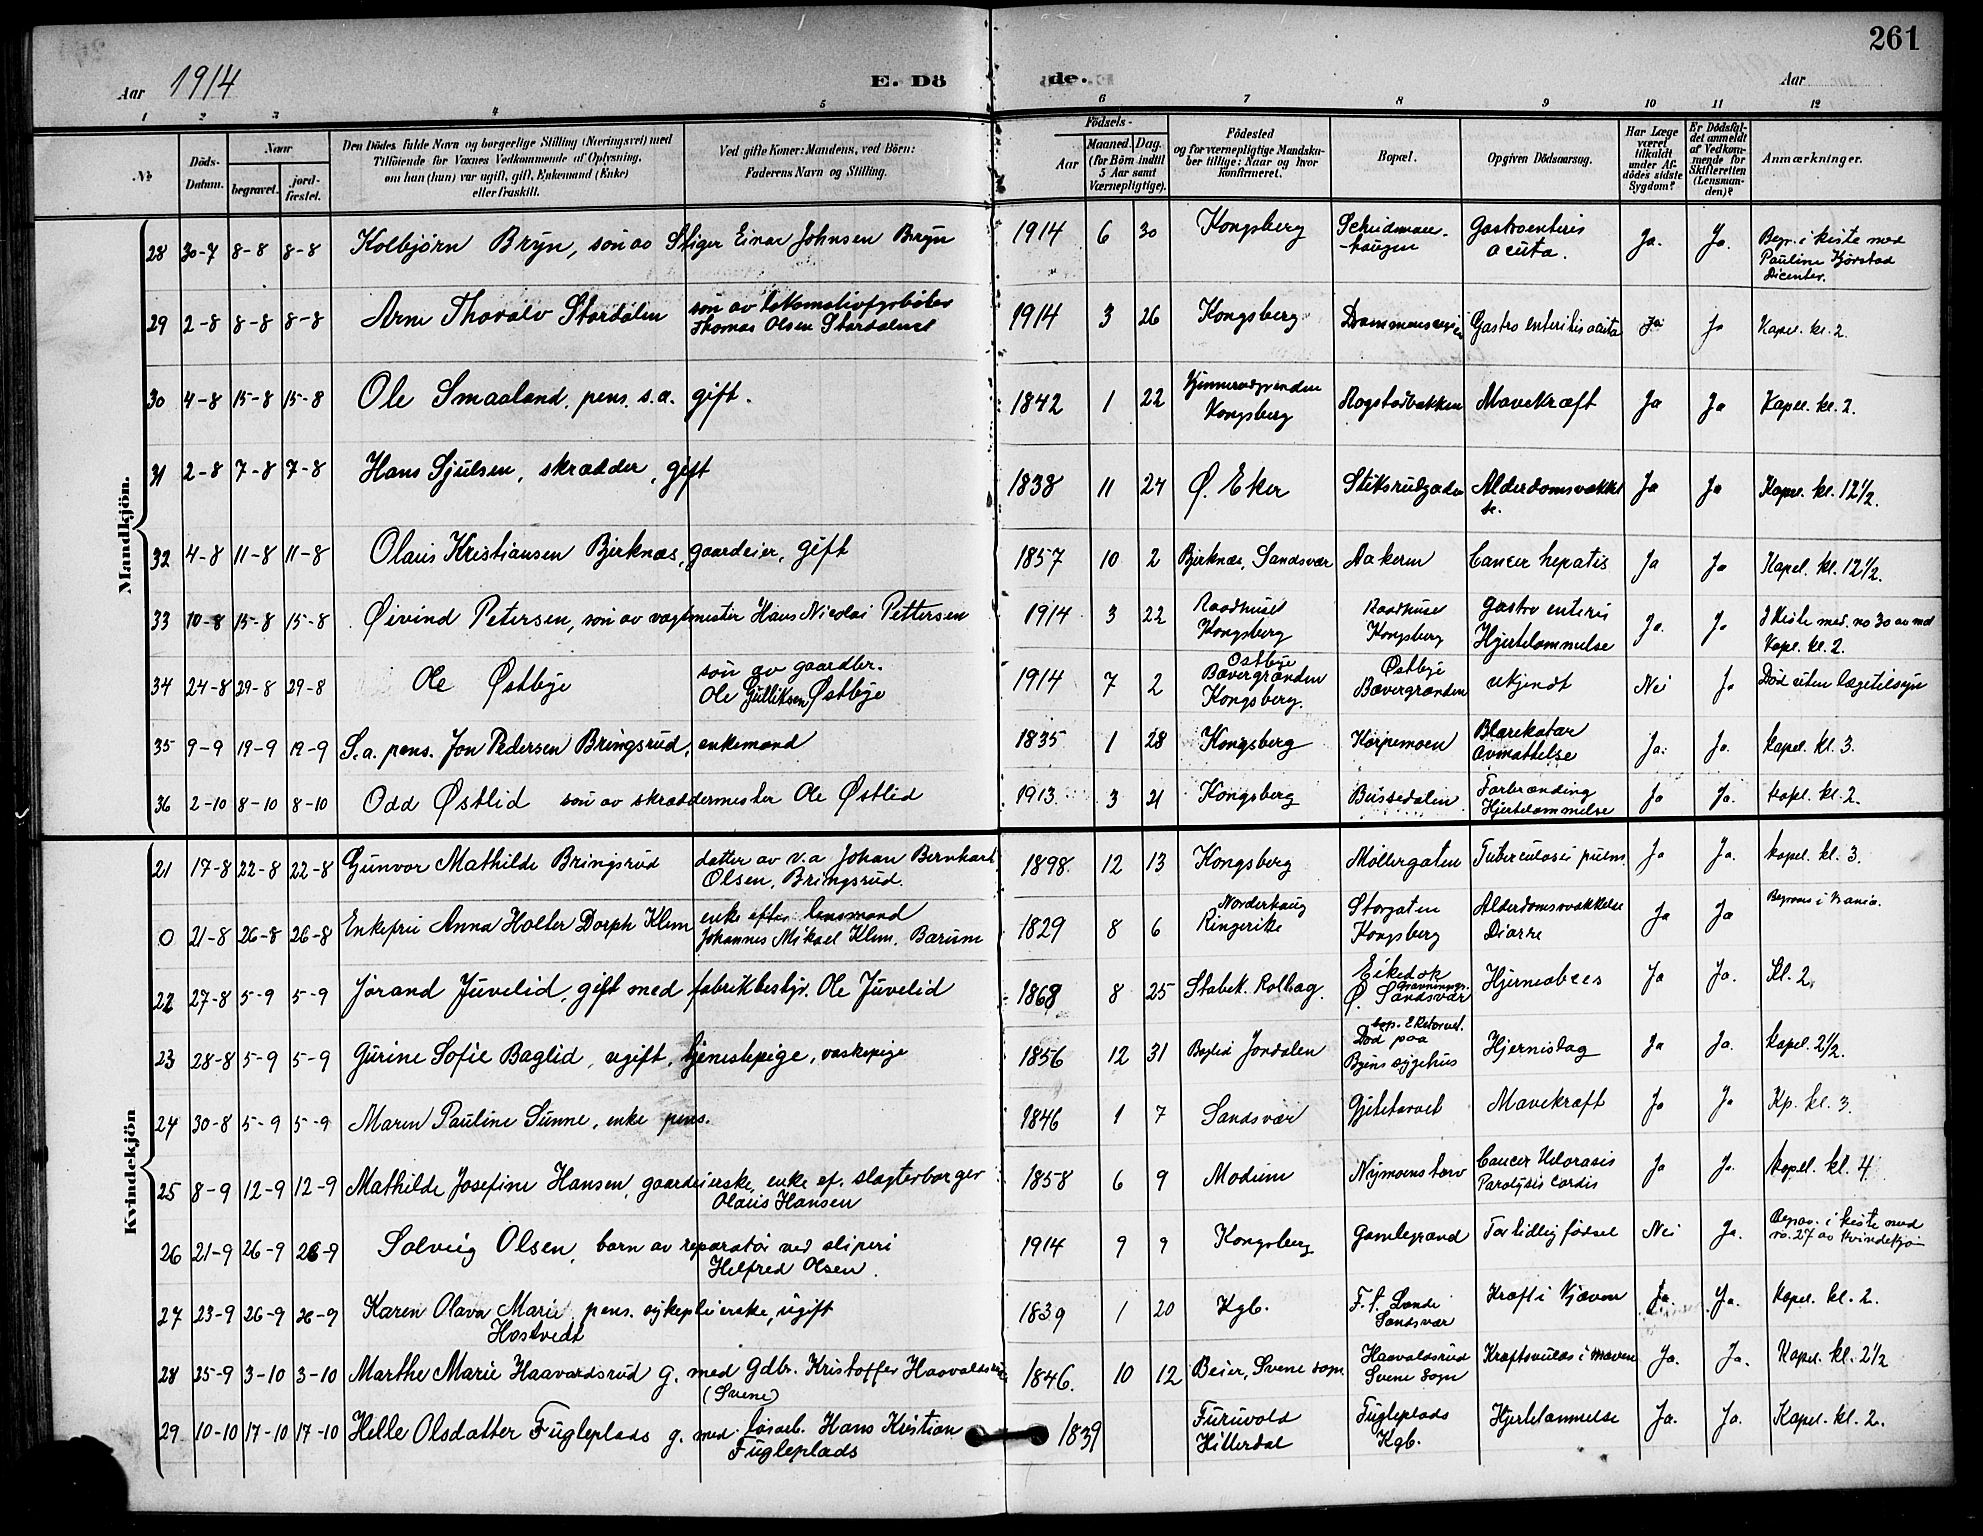 261
Aar 1914 E. Döde. Aar
1 2 3 4 5 6 7 8 9 10 11 12
No
Döds-Datum.
Naar
begravet.
jordfæstet.
Den Dödes fulde Navn og borgerlige Stilling (Næringsvei) med
Tilföiende for Voxnes Vedkommende af Oplysning,
om han (hun) var ugift, gift, Enkemand (Enke)
eller fraskilt.
Ved gifte Koner: Mandens, ved Börn:
Faderens Navn og Stilling.
Födsels-
Aar
Maaned. Dag.
(for Börn indtil
5 Aar samt
Værnepligtige).
Födested
og for værnepligtige Mandskaber tillige: Naar og hvor
konfirmeret.
Bopæl.
Opgiven Dödsaarsag.
Har Læge
været
tilkaldt
under Afdödes sidste
Sygdom?
Er Dödsfaldet anmeldt
af Vedkommende for
Skifteretten
(Lensmanden)?
Anmærkninger.
Mandkjön.
28 30-7 8-8 8-8 Kolbjørn Bryn, søn av Stiger Einar Johnsen Bryn 1914 6 30 Kongsberg Gastroenteris acuta. Ja. Ja. Begr. i kiste med Pauline
29 2-8 8-8 8-8 Arne Thoralv Stordalen søn av lokomotivfyrbøter Thomas Olsen Stordalen 1914 3 26 Kongsberg Gastro enteritis acuta Ja Ja Kapel. kl. 2.
30 4-8 15-8 15-8 Ole Smaaland, pens. s.a. gift. 1842 1 22 Kongsberg Rogstadbakken Mavekræft Ja Ja Kapel. kl. 2.
31 2-8 7-8 7-8 Hans Sjulsen, skrædder, gift 1838 11 24 Ø. Eker Alderdomsvakkelse. Ja Ja Kapel. kl. 12½.
32 4-8 11-8 11-8 Olaus Kristiansen Bjerknæs, gaardeier, gift 1857 10 2 Bjerknæs, Sandsvær Aakeren Cancer hepatis Ja Ja Kapel. kl. 12½.
33 10-8 15-8 15-8 Øivind Petersen, søn av vagtmester Hans Nicolai Pettersen 1914 3 22 Raadhuset Kongsberg Raadhuset Kongsberg Gastro enteris Hjertelammelse Ja. Ja I kiste med no 30 Kapel. kl. 2.
34 24-8 29-8 29-8 Ole Østbye søn av gaardbr. Ole Gulliksen Østbye 1914 7 2 Østbye Bævergrænden Kongsberg. Østbye Bævergrænden ukjendt Nei Ja Død uten lægetilsyn
35 9-9 19-9 19-9 S.a. pens. Jon Pedersen Bringsrud, enkemand 1835 1 28 Kongsberg Korpemoen Blærekatar avmattelse Ja. Ja. Kapel. kl. 3.
36 2-10 8-10 8-10 Odd Østlid søn av skræddermester Ole Østlid 1913 3 21 Kongsberg Bussedalen Forbrænding Hjertelammelse Ja Ja. Kapel. kl. 2.
Kvindekjön
21 17-8 22-8 22-8 Gunvor Mathilde Bringsrud datter av v.a Johan Bernhart Olsen, Bringsrud. 1898. 12 13 Kongsberg Møllergaten Tuberculosis pulm. Ja Ja. Kapel. kl. 3.
0 21-8 26-8 26-8 Enkefru Anna Holter Dorph Klem enke efter lensmand Johannes Mikael Klem, Bærum 1829 8 6 Norderhaug Ringerike Storgaten Kongsberg Alderdomsvakkelse Diarre Ja Ja
22 27-8 5-9 5-9 Jørand Juvelid, gift med fabrikbestyr. Ole Juvelid 1868 8 25 Stabek. Rollag. Ø. Sandsvær Hjerneabces Ja Ja. Kl. 2.
23 28-8 5-9 5-9 Gurine Sofie Baglid, ugift, tjenestepige, vaskepige 1856 12 31 Baglid Jondalen Død paa Byens sygehus Hjerneslag Ja Ja. Kapel. 2½.
24 30-8 5-9 5-9 Maren Pauline Sunne, enke pens. 1846 1 7 Sandsvær Gjetetorvet Mavekræft Ja Ja Kp. kl. 3.
25 8-9 12-9 12-9 Mathilde Josefine Hansen, gaardeierske, enke ef. slagterborger Olaus Hansen 1858 6 9 Modum Nymoens torv Cancer Paralysis cordis Ja Ja. Kapel. kl. 4
26 21-9 26-9 26-9 Solveig Olsen, barn av reparatør ved sliperi Helfred Olsen. 1914 9 9 Kongsberg Gamlegrænd For tidlig fødsel Nei Ja. Begrav. i kiste med no. 27 av kvindekjøn
27 23-9 26-9 26-9 Karen Olava Marie Hostvedt pens. sykepleierske, ugift 1839 1 20 Kgb. Sandsvær Kræft i Ja Ja. Kapel. kl. 2.
28 25-9 3-10 3-10 Marthe Marie Haavardsrud g. med Gdbr. Kristoffer (Svene) 1846. 10 12 Svene sogn. Svene sogn Ja. Ja. Kapel. kl. 2½
29 10-10 17-10 17-10 Helle Olsdatter Fugleplads g. med løsarb. Hans Kristian Fugleplads 1839 Furuvold Hitterdal Fugleplads Kgb. Hjertelammelse Ja. Ja. Kapel. kl. 2.